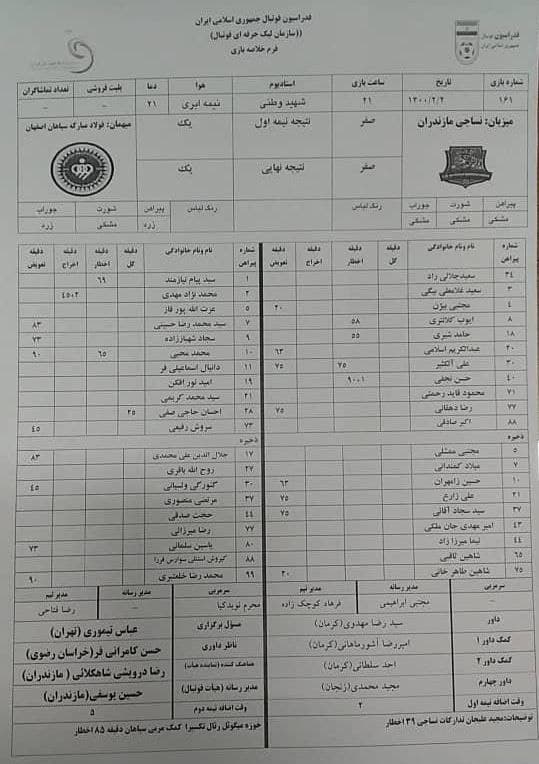 فدراسیون فوتبال جمهوری اسلامی ایران
((سازمان لیگ حرفه ای فوتبال))
فرم خلاصه بازی
فدراسیون فوتبال
جمهوری اسلامی ایران
شماره بازی تاریخ ساعت بازی استادیوم هوا دما بلیت فروشی تعداد تماشاگران
۱۶۱ ۱۴۰۰/۲/۲ ۲۱ شهید وطنی نیمه ابری ۲۱ – –
میزبان: نساجی مازندران صفر نتیجه نیمه اول یک میهمان: فولاد مبارکه سپاهان اصفهان
صفر نتیجه نهایی یک
پیراهن شورت جوراب رنگ لباس رنگ لباس پیراهن شورت جوراب
مشکی مشکی مشکی زرد مشکی زرد
شماره پیراهن نام ونام خانوادگی دقیقه گل دقیقه اخطار دقیقه اخراج دقیقه تعویض
۳۴ سعیدجلالی راد
۳ سعید غلامعلی بیگی
۴ مجتبی بیژن ۲۰
۸ ایوب کلانتری ۵۸
۱۸ حامد شیری ۵۵
۲۰ عبدالکریم اسلامی ۶۳
۳۰ علی آلکثیر ۷۵ ۷۵
۴۰ حسن نجفی ۹۰+۱
۷۱ محمود قاید رحمتی
۷۷ رضا دهقانی ۷۵
۸۸ اکبر صادقی
ذخیره
۵ مجتبی ممشلی
۷ میلاد کمندانی
۱۰ حسین زامهران ۶۳
۲۱ علی زارع ۷۵
۳۷ سید سجاد آقائی ۷۵
۴۳ امیر مهدی جان ملکی
۴۴ نیما میرزا زاد
۶۵ شاهین ثاقبی
۷۵ شاهین طاهر خانی ۲۰
سرمربی مدیر رسانه مدیر تیم
– مجتبی ابراهیمی فرهاد کوچک زاده
داور سید رضا مهدوی(کرمان)
کمک داور ۱ امیررضا آشورماهانی(کرمان)
کمک داور ۲ احد سلطانی(کرمان)
داور چهارم مجید محمدی(زنجان)
وقت اضافه نیمه اول ۲
توضیحات:مجید علیجان تدارکات نساجی ۳۹ اخطار
شماره پیراهن نام ونام خانوادگی دقیقه گل دقیقه اخطار دقیقه اخراج دقیقه تعویض
۱ سید پیام نیازمند ۶۹
۲ محمد نژاد مهدی ۴۵+۲
۵ عزت الله پور قاز
۷ سید محمد رضا حسینی ۸۳
۹ سجاد شهباززاده ۷۳
۱۰ محمد محبی ۶۵ ۹۰
۱۱ دانیال اسماعیلی فر
۱۹ امید نور افکن
۲۱ سید محمد کریمی
۲۸ احسان حاجی صفی ۲۵
۷۳ سروش رفیعی ۴۵
ذخیره
۱۷ جلال الدین علی محمدی ۸۳
۲۷ روح الله باقری
۳۰ گئورگی ولسیانی ۴۵
۳۷ مرتضی منصوری
۴۴ حجت صدقی
۷۷ رضا میرزائی
۸۰ یاسین سلمانی ۷۳
۸۸ کیروش استنلی سوارس فررا
۹۹ محمد رضا خلعتبری ۹۰
سرمربی مدیر رسانه مدیر تیم
محرم نویدکیا – رضا فتاحی
مسؤل برگزاری عباس تیموری (تهران)
ناظر داوری حسن کامرانی فر(خراسان رضوی)
هماهنگ کننده (نماینده هیأت) رضا درویشی شاهکلائی ( مازندران)
مدیر رسانه (هیأت فوتبال) حسین یوسفی(مازندران)
وقت اضافه نیمه دوم ۵
حوزه میگوئل رئال تکسیرا کمک مربی سپاهان دقیقه ۸۵ اخطار